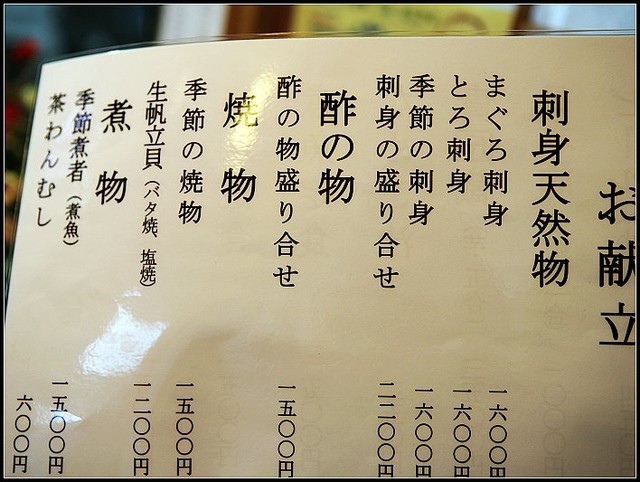 お献立
刺身天然物
まぐろ刺身 一六〇〇円
とろ刺身 一六〇〇円
季節の刺身 一六〇〇円
刺身の盛り合せ 二二〇〇円
酢の物
酢の物盛り合せ 一五〇〇円
焼物
季節の焼物 一五〇〇円
生帆立貝(バタ焼、塩焼) 一二〇〇円
煮物
季節煮者(煮魚) 一五〇〇円
茶わんむし 六〇〇円